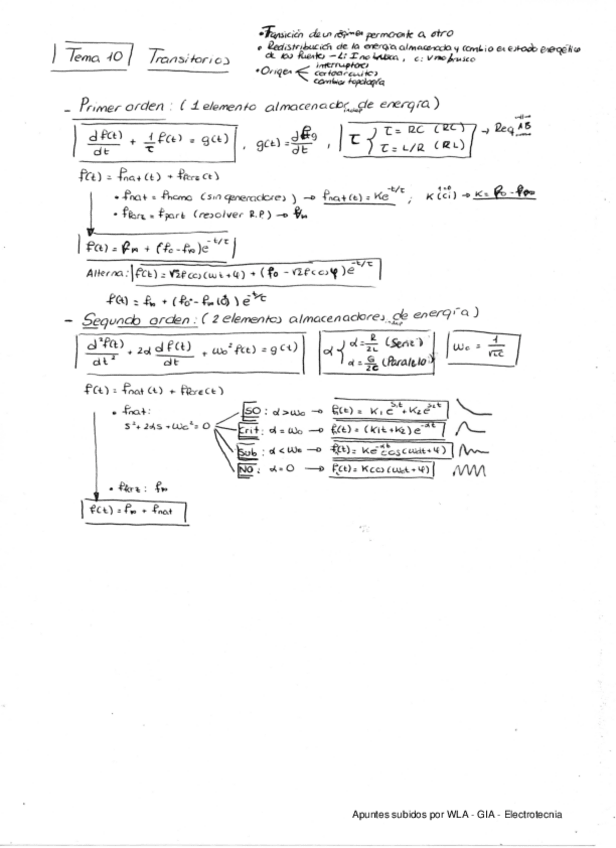 • Transición de un régimen permanente a otro
Tema 10 Transitorios
• Redistribución de la energía almacenada y cambio en estado energético
de las fuentes - L: I no brusca, C: V no brusco
• Origen < interruptores
cortocircuitos
cambio topología
- Primer orden: (1 elemento almacenador de energía)
df(t)/dt + 1/τ f(t) = g(t) , τ { τ = RC (RC) τ = L/R (RL) → Req AB
f(t) = fnat(t) + fforz(t)
• fnat = fhomo (sin generadores) → fnat(t) = Ke^-t/τ ; K (CI) → K = f0 - f∞
• fforz = fpart (resolver R.P) → f∞
f(t) = f∞ + (f0 - f∞)e^-t/τ
Alterna: f(t) = √2Fcos(ωt+φ) + (f0 - √2Fcosφ)e^-t/τ
f(t) = f∞ + (f0 - f∞(0))e^-t/τ
- Segundo orden: (2 elementos almacenadores de energía)
d²f(t)/dt² + 2α df(t)/dt + ω0² f(t) = g(t) α { α = R/2L (Serie) α = G/2C (Paralelo) ω0 = 1/√LC
f(t) = fnat(t) + fforz(t)
• fnat:
s² + 2αs + ω0² = 0
SO: α > ω0 → f(t) = K1e^s1t + K2e^s2t
Crit: α = ω0 → f(t) = (K1t + K2)e^-αt
Sub: α < ω0 → f(t) = Ke^-αt cos(ωdt + φ)
NO: α = 0 → f(t) = Kcos(ω0t + φ)
• fforz: f∞
f(t) = f∞ + fnat
Apuntes subidos por WLA - GIA - Electrotecnia